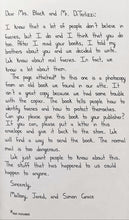 Dear Mrs. Black and Mr. DiTerlizzi:
I know that a lot of people don't believe in
faeries, but I do and I think that you do
too. After I read your books, I told my
brothers about you and we decided to write.
We know about real faeries. In fact, we
know a lot about them.
The page attached to this one is a photocopy
from an old book we found in our attic. It
isn't a great copy because we had some trouble
with the copier. The book tells people how to
identify faeries and how to protect themselves.
Can you please give this book to your publisher?
If you can, please put a letter in this
envelope and give it back to the store. We
will find a way to send the book. The normal
mail is too dangerous.
We just want people to know about this.
The stuff that has happened to us could
happen to anyone.
Sincerely,
Mallory, Jared, and Simon Grace